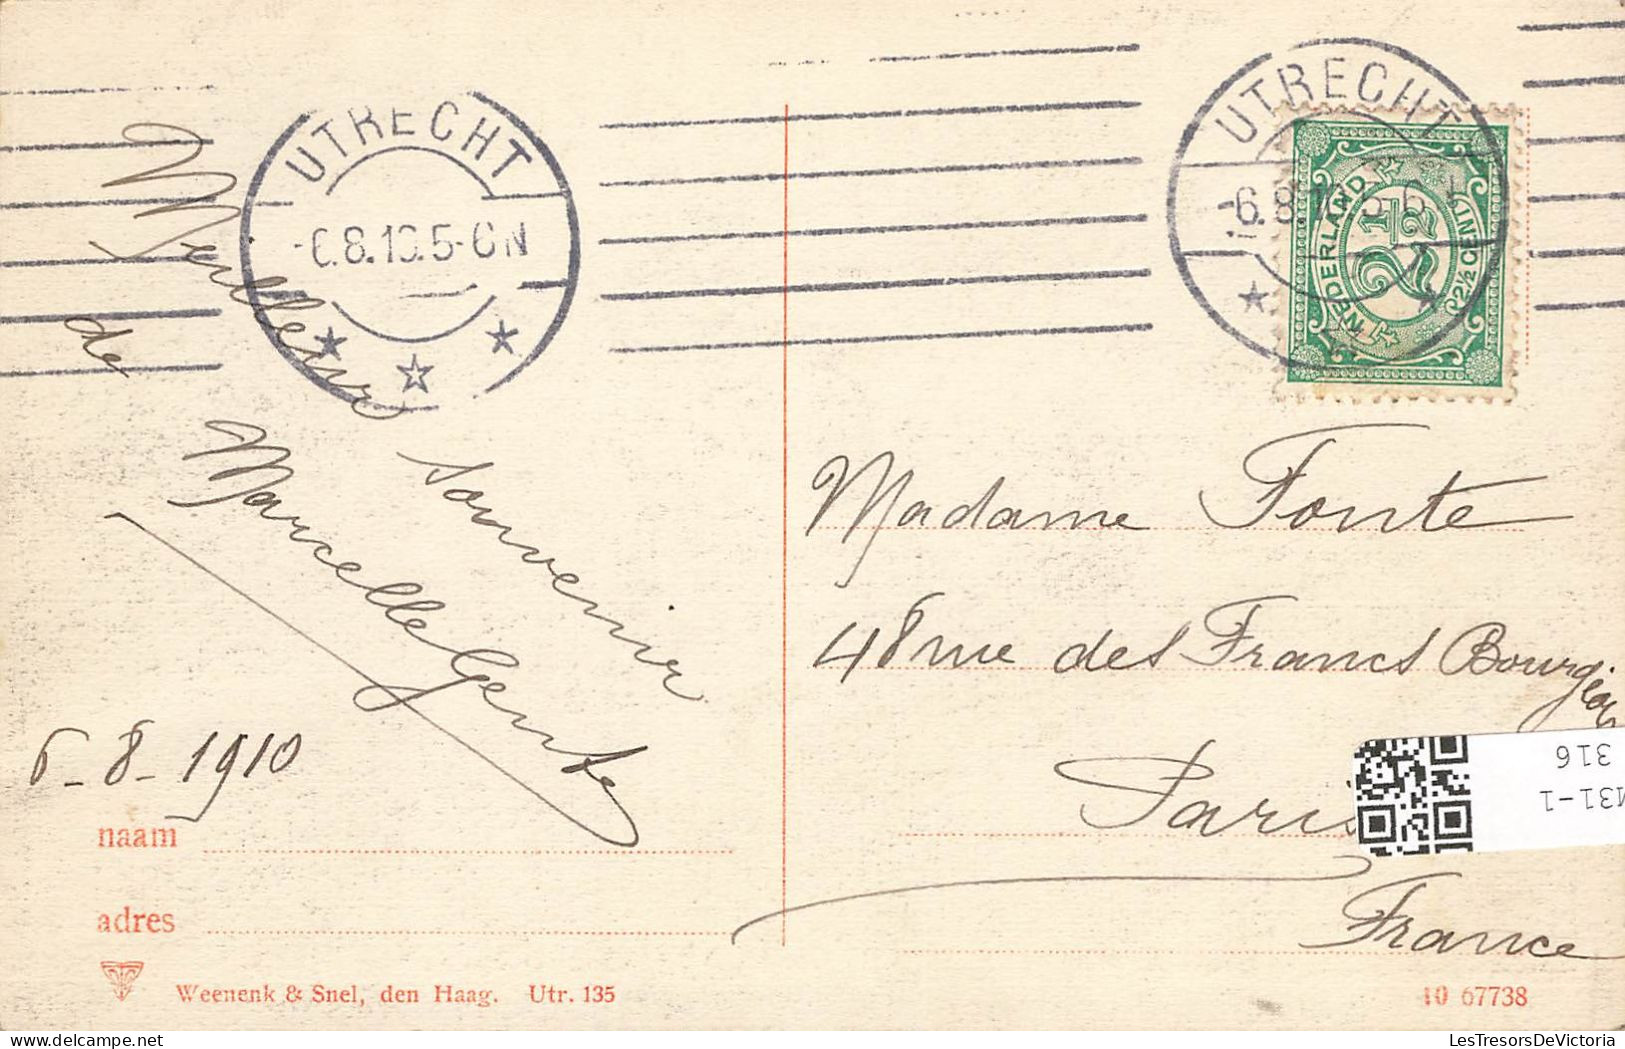 UTRECHT
-6.8.10.5-6N
UTRECHT
-6.8.10.5-6N
NEDERLAND
2½
2½ CENT
Meilleur souvenir
de Marcelle Gente
6-8-1910
Madame Fonte
48 rue des Francs Bourgeois
Paris
France
naam
adres
Weenenk & Snel, den Haag. Utr. 135
10 67738
316
M31-1
LesTresorsDeVictoria